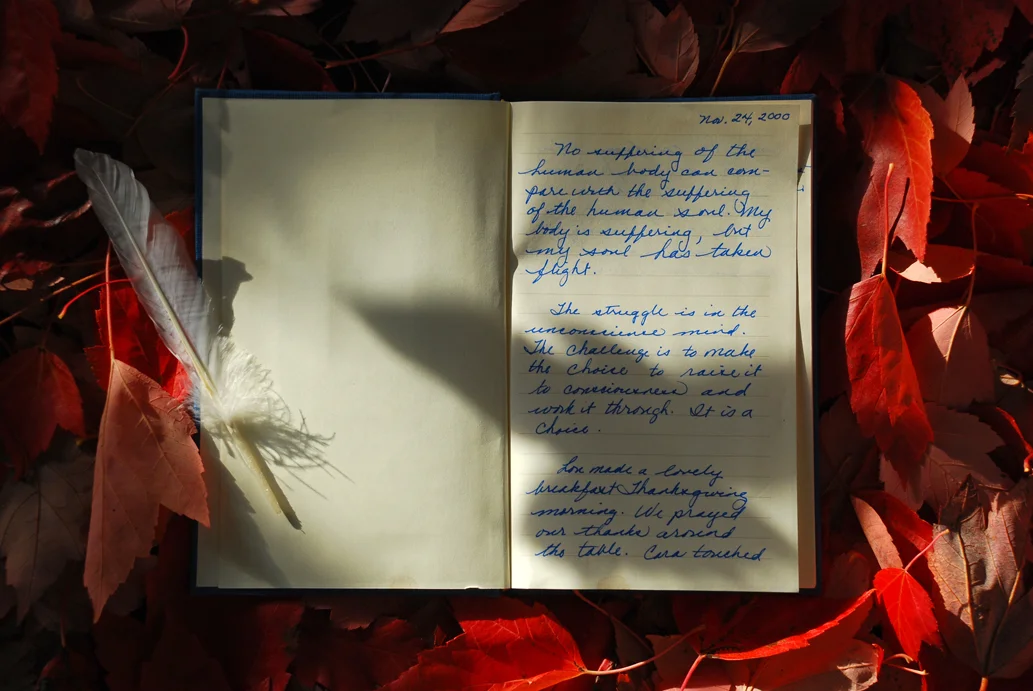 Nov. 24, 2000
No suffering of the
human body can com-
pare with the suffering
of the human soul. My
body is suffering, but
my soul has taken
flight.
The struggle is in the
unconscience mind.
The challenge is to make
the choice to raise it
to consciousness and
work it through. It is a
choice.
Lou made a lovely
breakfast Thanksgiving
morning. We prayed
our thanks around
the table. Cara touched